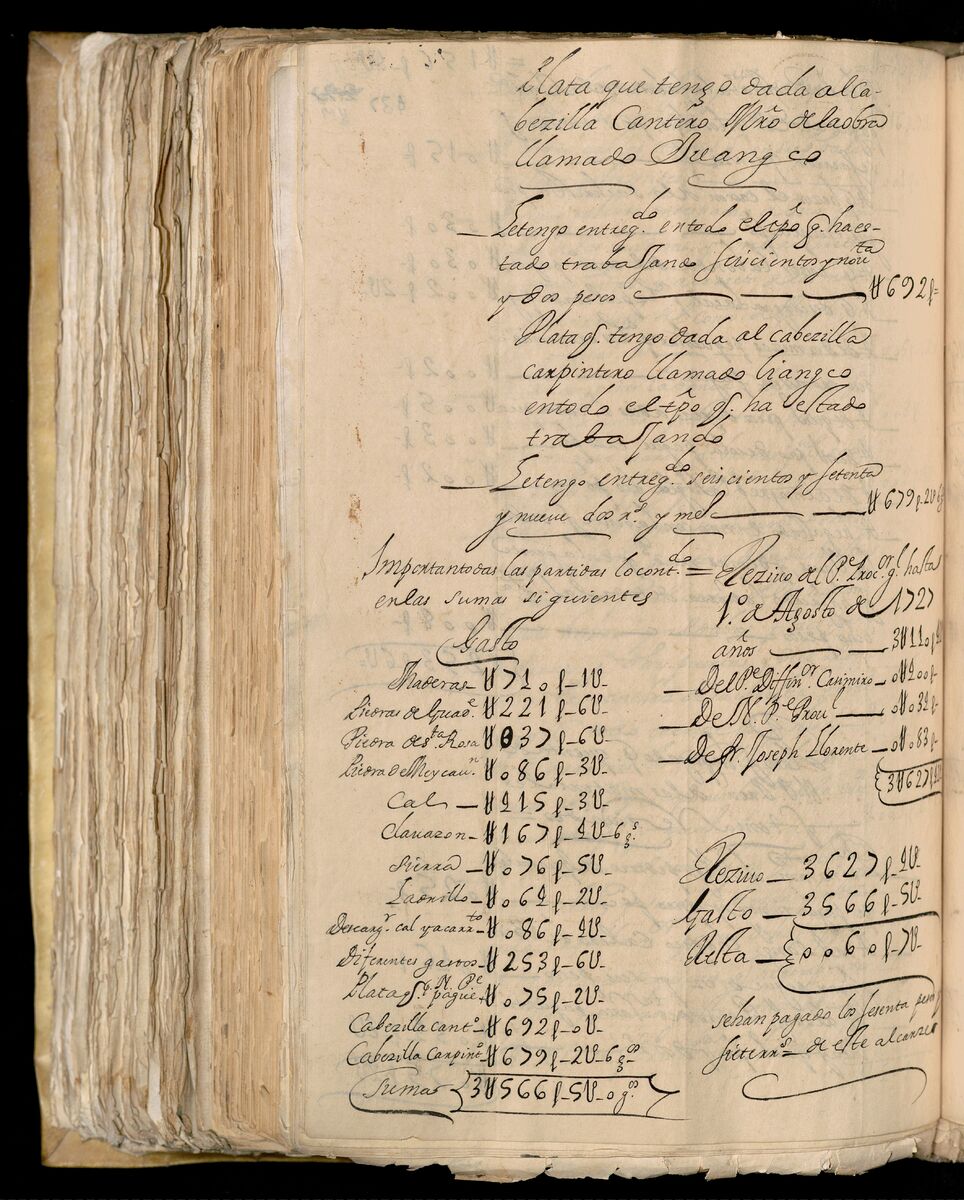 Plata que tengo dada al ca-
bezilla Cantẽro Mr̃o de la obra
llamado Suangco
Le tengo entreg.do en todo el tp̃o q. ha es-
tado trabajando seiscientos y nov.ta
y dos pesos — U692p=
Plata q. tengo dada al cabezilla
carpintero llamado Liangco
en todo el tp̃o q. ha estado
trabajando
Le tengo entreg.do seiscientos y setenta
y nueve dos r.s y m.o — U679p.2U 6g
Importan todas las partidas lo cont.do =
en las sumas siguientes
Gasto
Maderas — U710p-1U-
Piedras de Guad.e U221p-6U-
Piedra de S.ta Rosa U037p-6U-
Piedra de Meycau.n U086p-3U-
Cal — U215p-3U-
Clavazon — U167p-4U-6g.s
Sierra — U076p-5U-
Ladrillo — U064p-2U-
Descarg.r cal y acarr.to U086p-4U-
Diferentes gastos — U253p-6U-
Plata q. N. P.e pagué U075p-2U-
Cabezilla cant.o U692p-0U-
Cabezilla Carpint.o U679p-2U-6g.os
Sumas 3U566p-5U-0g.os
Rezivo del P.e Proc.or g.l hasta
1.o de Agosto de 1727
años — 3U110p
Del P.e Diffin.or Casimiro — 0U400p
De N. P.e Prov.l — 0U034p-
De fr. Joseph Llorente — 0U083p-
3U627p4U
Rezivo — 3627p-4U-
Gasto — 3566p-5U-
Resta — 0060p-7U-
se han pagado los sesenta pesos y
siete rr.s de este alcanze